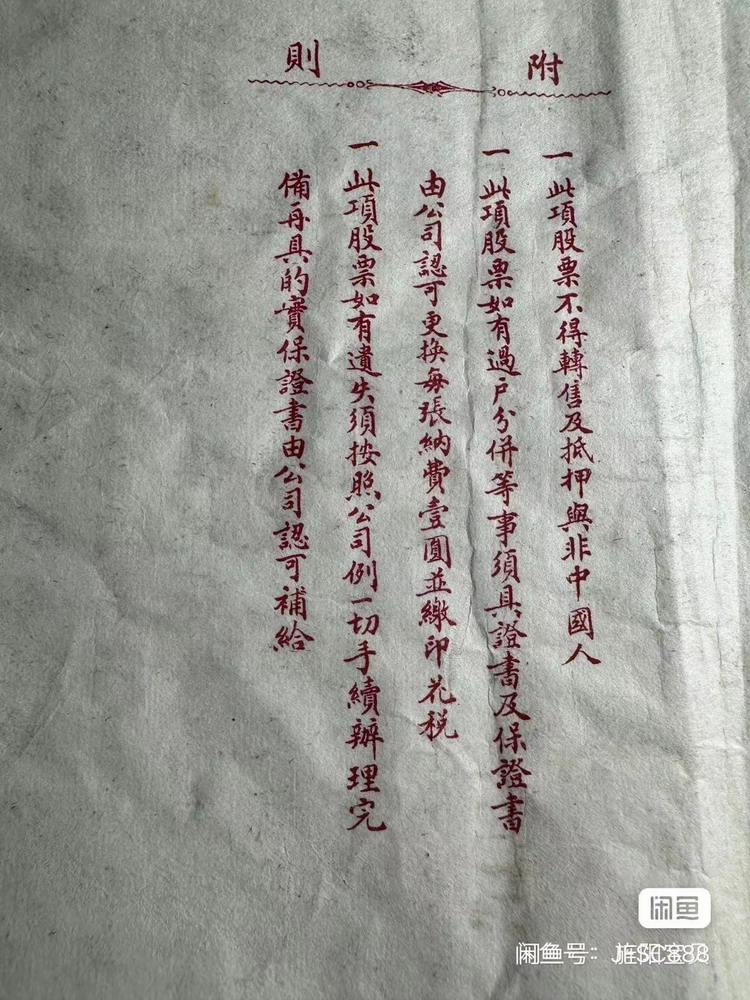 附則
一此項股票不得轉售及抵押與非中國人
一此項股票如有過戶分併等事須具證書及保證書
由公司認可更換每張納費壹圓並繳印花稅
一此項股票如有遺失須按照公司例一切手續辦理完
備再具的實保證書由公司認可補給
闲鱼
闲鱼号：